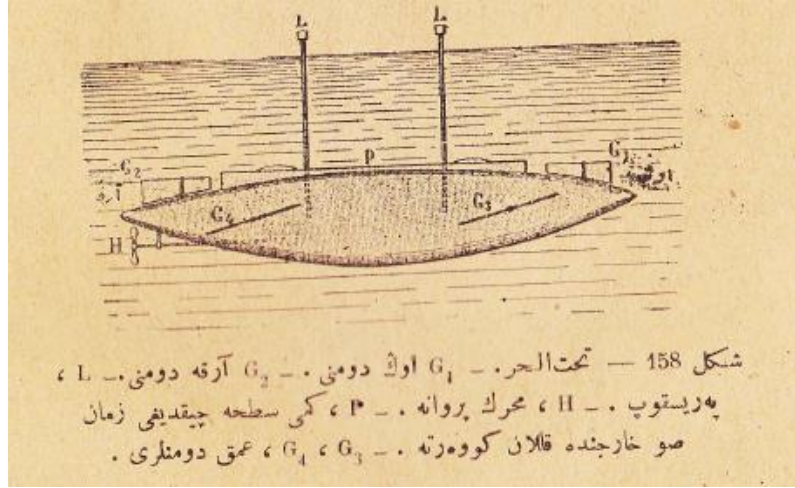 L L
P
G₂ G₁
آرقه اوڭ
G₄ G₃
H
شكل 158 — تحت‌الحر . — G₁ اوڭ دومنی . — G₂ آرقه دومنی . — L ،
په‌ریسقوپ . — H ، محرك پروانه . — P ، كمی سطحه چیقدیغی زمان
صو خارجنده قالان كووه‌رته . — G₃ ، G₄ ، عمق دومنلری .